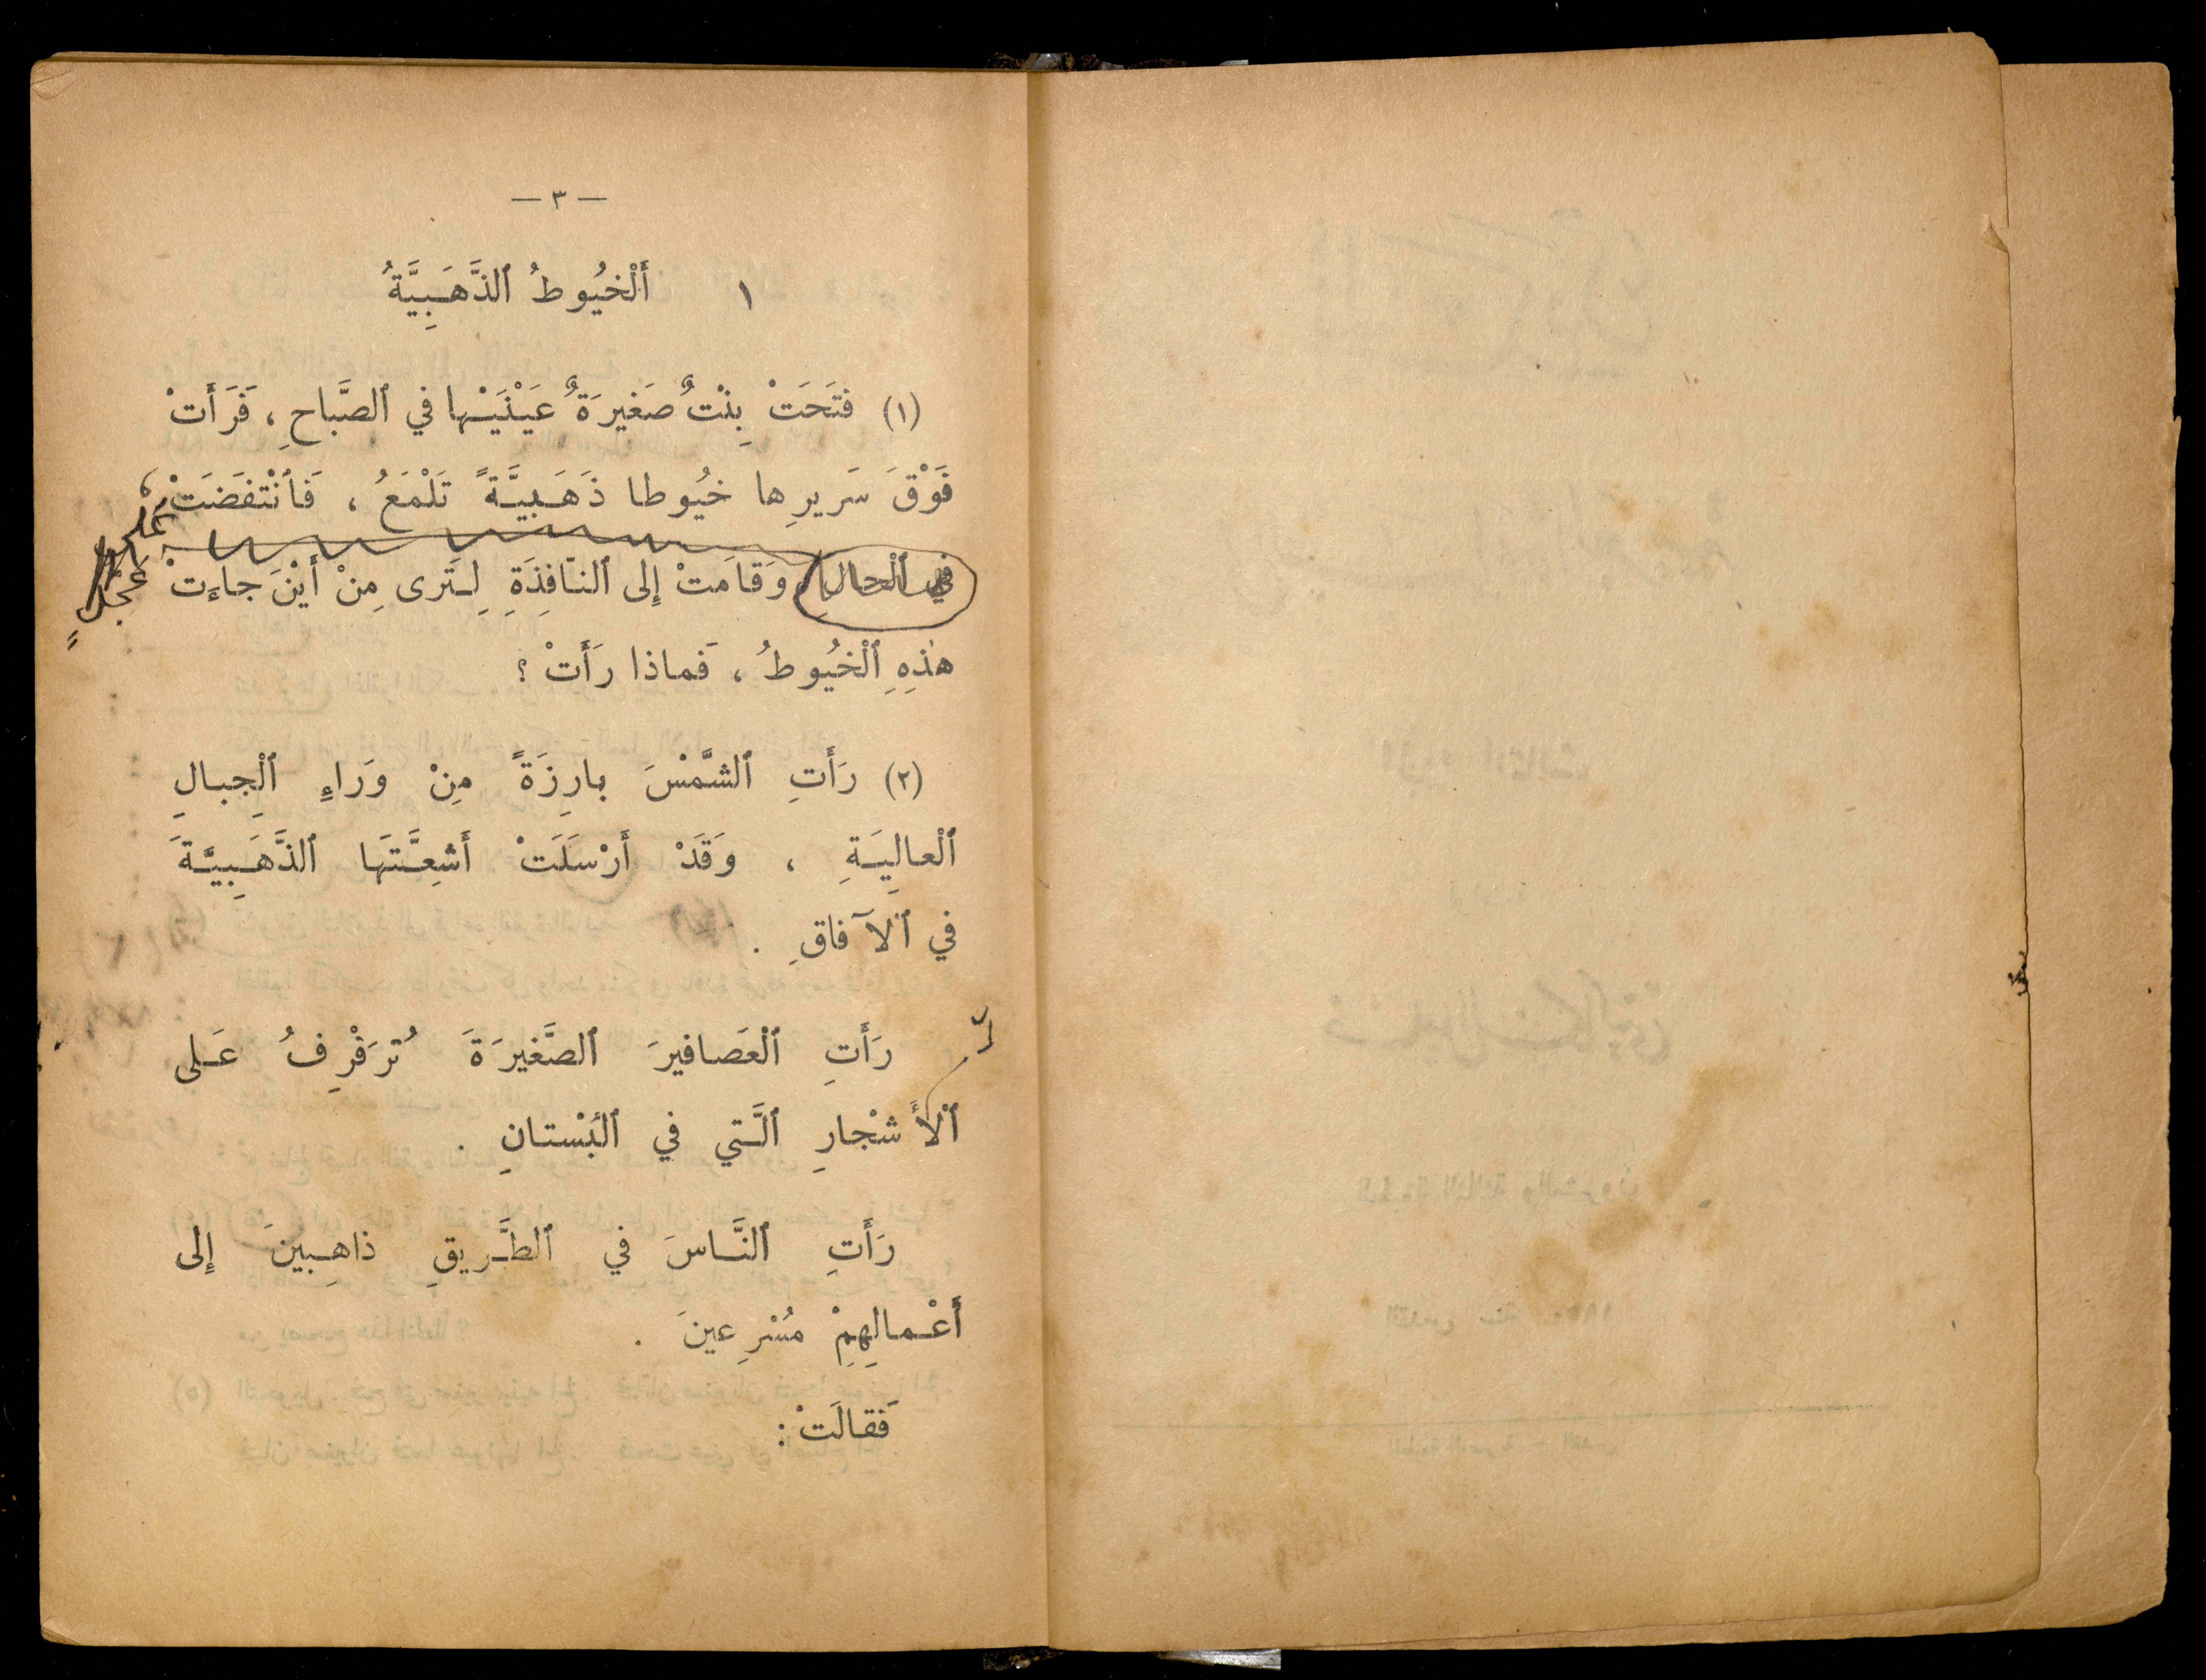 — ٣ —
١ أَلْخُيُوطُ ٱلذَّهَبِيَّةُ
(١) فَتَحَتْ بِنْتٌ صَغيرَةٌ عَيْنَيْها في ٱلصَّباحِ ، فَرَأَتْ
فَوْقَ سَريرِها خُيُوطا ذَهَبِيَّةً تَلْمَعُ ، فَٱنْتَفَضَتْ
في ٱلْحالِ وَقامَتْ إِلى ٱلنّافِذَةِ لِتَرى مِنْ أَيْنَ جاءَتْ
على عجلٍ
هٰذِهِ ٱلْخُيُوطُ ، فَماذا رَأَتْ ؟
(٢) رَأَتِ ٱلشَّمْسَ بارِزَةً مِنْ وَراءِ ٱلْجِبالِ
ٱلْعالِيَةِ ، وَقَدْ أَرْسَلَتْ أَشِعَّتَهَا ٱلذَّهَبِيَّةَ
في ٱلآفاقِ .
رَأَتِ ٱلْعَصافيرَ ٱلصَّغيرَةَ تُرَفْرِفُ عَلى
ٱلْأَشْجارِ ٱلَّتي في ٱلْبُسْتانِ .
رَأَتِ ٱلنَّاسَ في ٱلطَّريقِ ذاهِبينَ إِلى
أَعْمالِهِمْ مُسْرِعينَ .
فَقالَتْ :